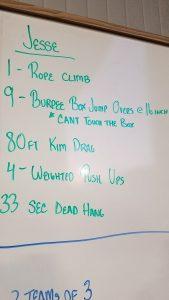 Jesse
1 - Rope climb
9 - Burpee Box Jump Overs @ 16 inch
* Cant Touch the Box
80ft Kim Drag
4 - Weighted Push Ups
33 Sec Dead Hang
2 Teams of 3